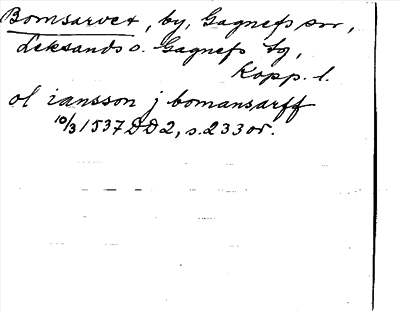 Bomsarvet, by, Gagnefs sn,
Leksands o. Gagnefs tg,
Kopp. l.
ol iansson j bomansarff
10/3 1537 DD2, s. 233 or.